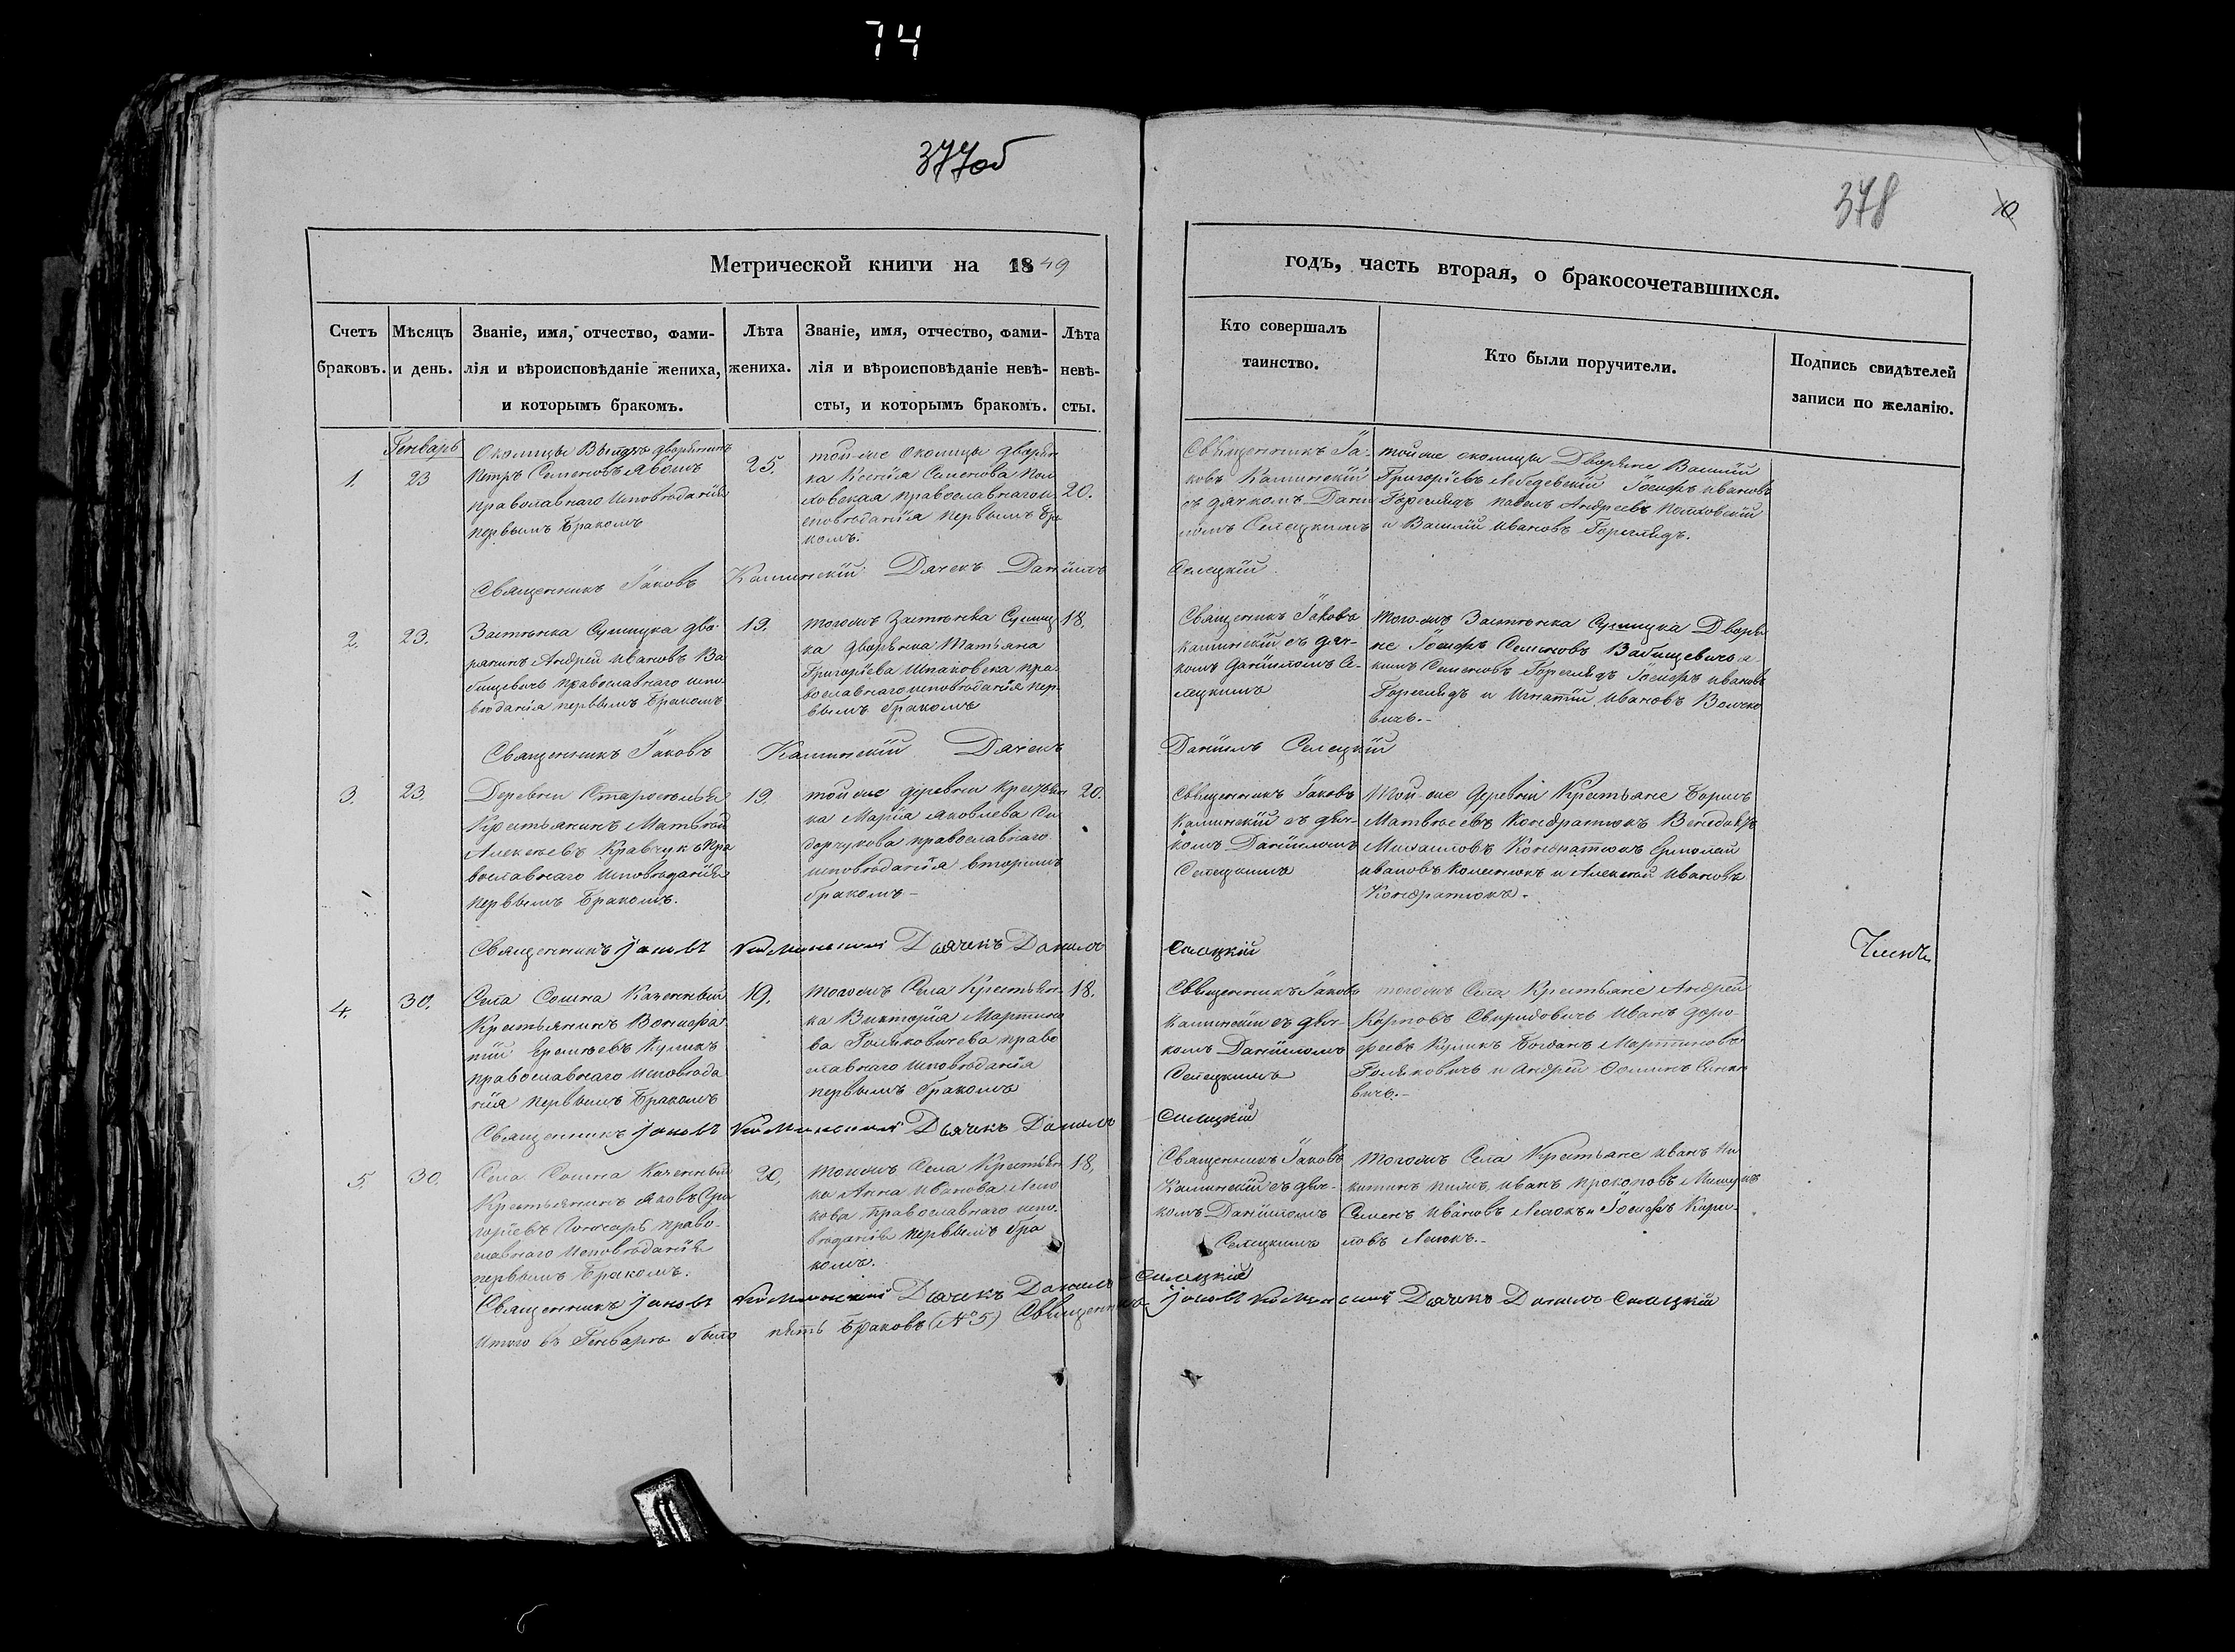 74
377об
378
Метрической книги на 1849
годъ, часть вторая, о бракосочетавшихся.
Счетъ браковъ.
Мѣсяцъ и день.
Званіе, имя, отчество, фами-
лія и вѣроисповѣданіе жениха,
и которымъ бракомъ.
Лѣта
жениха.
Званіе, имя, отчество, фами-
лія и вѣроисповѣданіе невѣ-
сты, и которымъ бракомъ.
Лѣта
невѣ-
сты.
Кто совершалъ
таинство.
Кто были поручители.
Подпись свидѣтелей
записи по желанію.
Генварь
1.
23
Околицы дворянинъ
Петръ Семеновъ
православнаго исповѣданія
первымъ бракомъ
25.
той-же Околицы дворян
ка Ксенія Семенова
православнаго и
сповѣданія первымъ бра
комъ.
20.
Священникъ Іа-
ковъ Калинскій
съ дячкомъ Дані
иломъ Селецкимъ
той же околицы Дворяне Василій
Григоріевъ Лебедевскій Іосифъ Ивановъ
Горегляд Павелъ Андреевъ
и Василій Ивановъ Горегляд.
Священникъ Іаковъ Калинскій Дячекъ Даніилъ Селецкій
2.
23.
Застѣнка дво-
рянинъ Андрей Ивановъ Ва
бищевичъ православнаго испо
вѣданія первымъ бракомъ
19.
тогожъ Застѣнка
ка дворянка Татьяна
Григоріева пра
вославнаго исповѣданія пер-
вымъ бракомъ
18.
Священникъ Іаковъ
Калинскій съ дяч-
комъ Данииломъ Се-
лецкимъ
того-жъ Застѣнка Дворя
не Іосифъ Семеновъ Вабищевичь а
кимъ Семеновъ Горегляд Іосифъ Ивановъ
Горегляд и Игнатій Ивановъ Волчко
вичъ.-
Священникъ Іаковъ Калинскій Дячекъ Даніилъ Селецкій
3.
23.
Деревни
Крестьянинъ Матвѣй
Алексѣевъ Кравчукъ пра
вославнаго исповѣданія
первымъ бракомъ.
19.
той же деревни крестьян
ка Марія Яковлева Си
дорчукова православнаго
исповѣданія вторымъ
бракомъ-
20.
Священникъ Іаковъ
Калинскій съ дяч-
комъ Даніиломъ
Селецкимъ
Той-же деревни Крестьяне Борисъ
Матвѣевъ Кондратюкъ
Михаиловъ Кондратюкъ Ермолай
Ивановъ и Алексѣй Ивановъ
Кондратюкъ.
Священникъ Іаковъ Калинскій Дьячекъ Данилъ Селецкій
4.
30.
Села Сошна Казенный
Крестьянинъ Вонифа
тій Куликъ
православнаго исповѣда
нія первымъ бракомъ
19.
тогожъ Села Крестьян-
ка Викторія Мартино
ва право
славнаго исповѣданія
первымъ бракомъ
18.
Священникъ Іаковъ
Калинскій съ дяч-
комъ Даніиломъ
Селецкимъ
тогожъ Села Крестьяне Андрей
Карповъ Свиридовичъ Иванъ доро-
феевъ Куликъ Богданъ Мартиновъ
и Андрей Фоминъ
вичъ.-
Священникъ Іаковъ Калинскій Дьячекъ Данилъ Селецкій
5.
30.
Села Сошна Казенный
Крестьянинъ Яковъ Гри
горіевъ Гончаръ право-
славнаго исповѣданія
первымъ бракомъ.
20.
тогожъ Села Крестьян
ка Анна Иванова
кова православнаго испо-
вѣданія первымъ бра
комъ.
18.
Священникъ Іаковъ
Калинскій съ дяч-
комъ Даніиломъ
Селецкимъ
тогожъ Села Крестьяне Иванъ Ни
китинъ Иванъ Прокоповъ
Семенъ Ивановъ и Іосифъ Кири-
ловъ
Священникъ Іаковъ Калинскій Дьячекъ Данилъ Селецкій
Итого въ Генварѣ было пять браковъ (№ 5) Священникъ Іаковъ Калинскій Дьячекъ Данилъ Селецкій